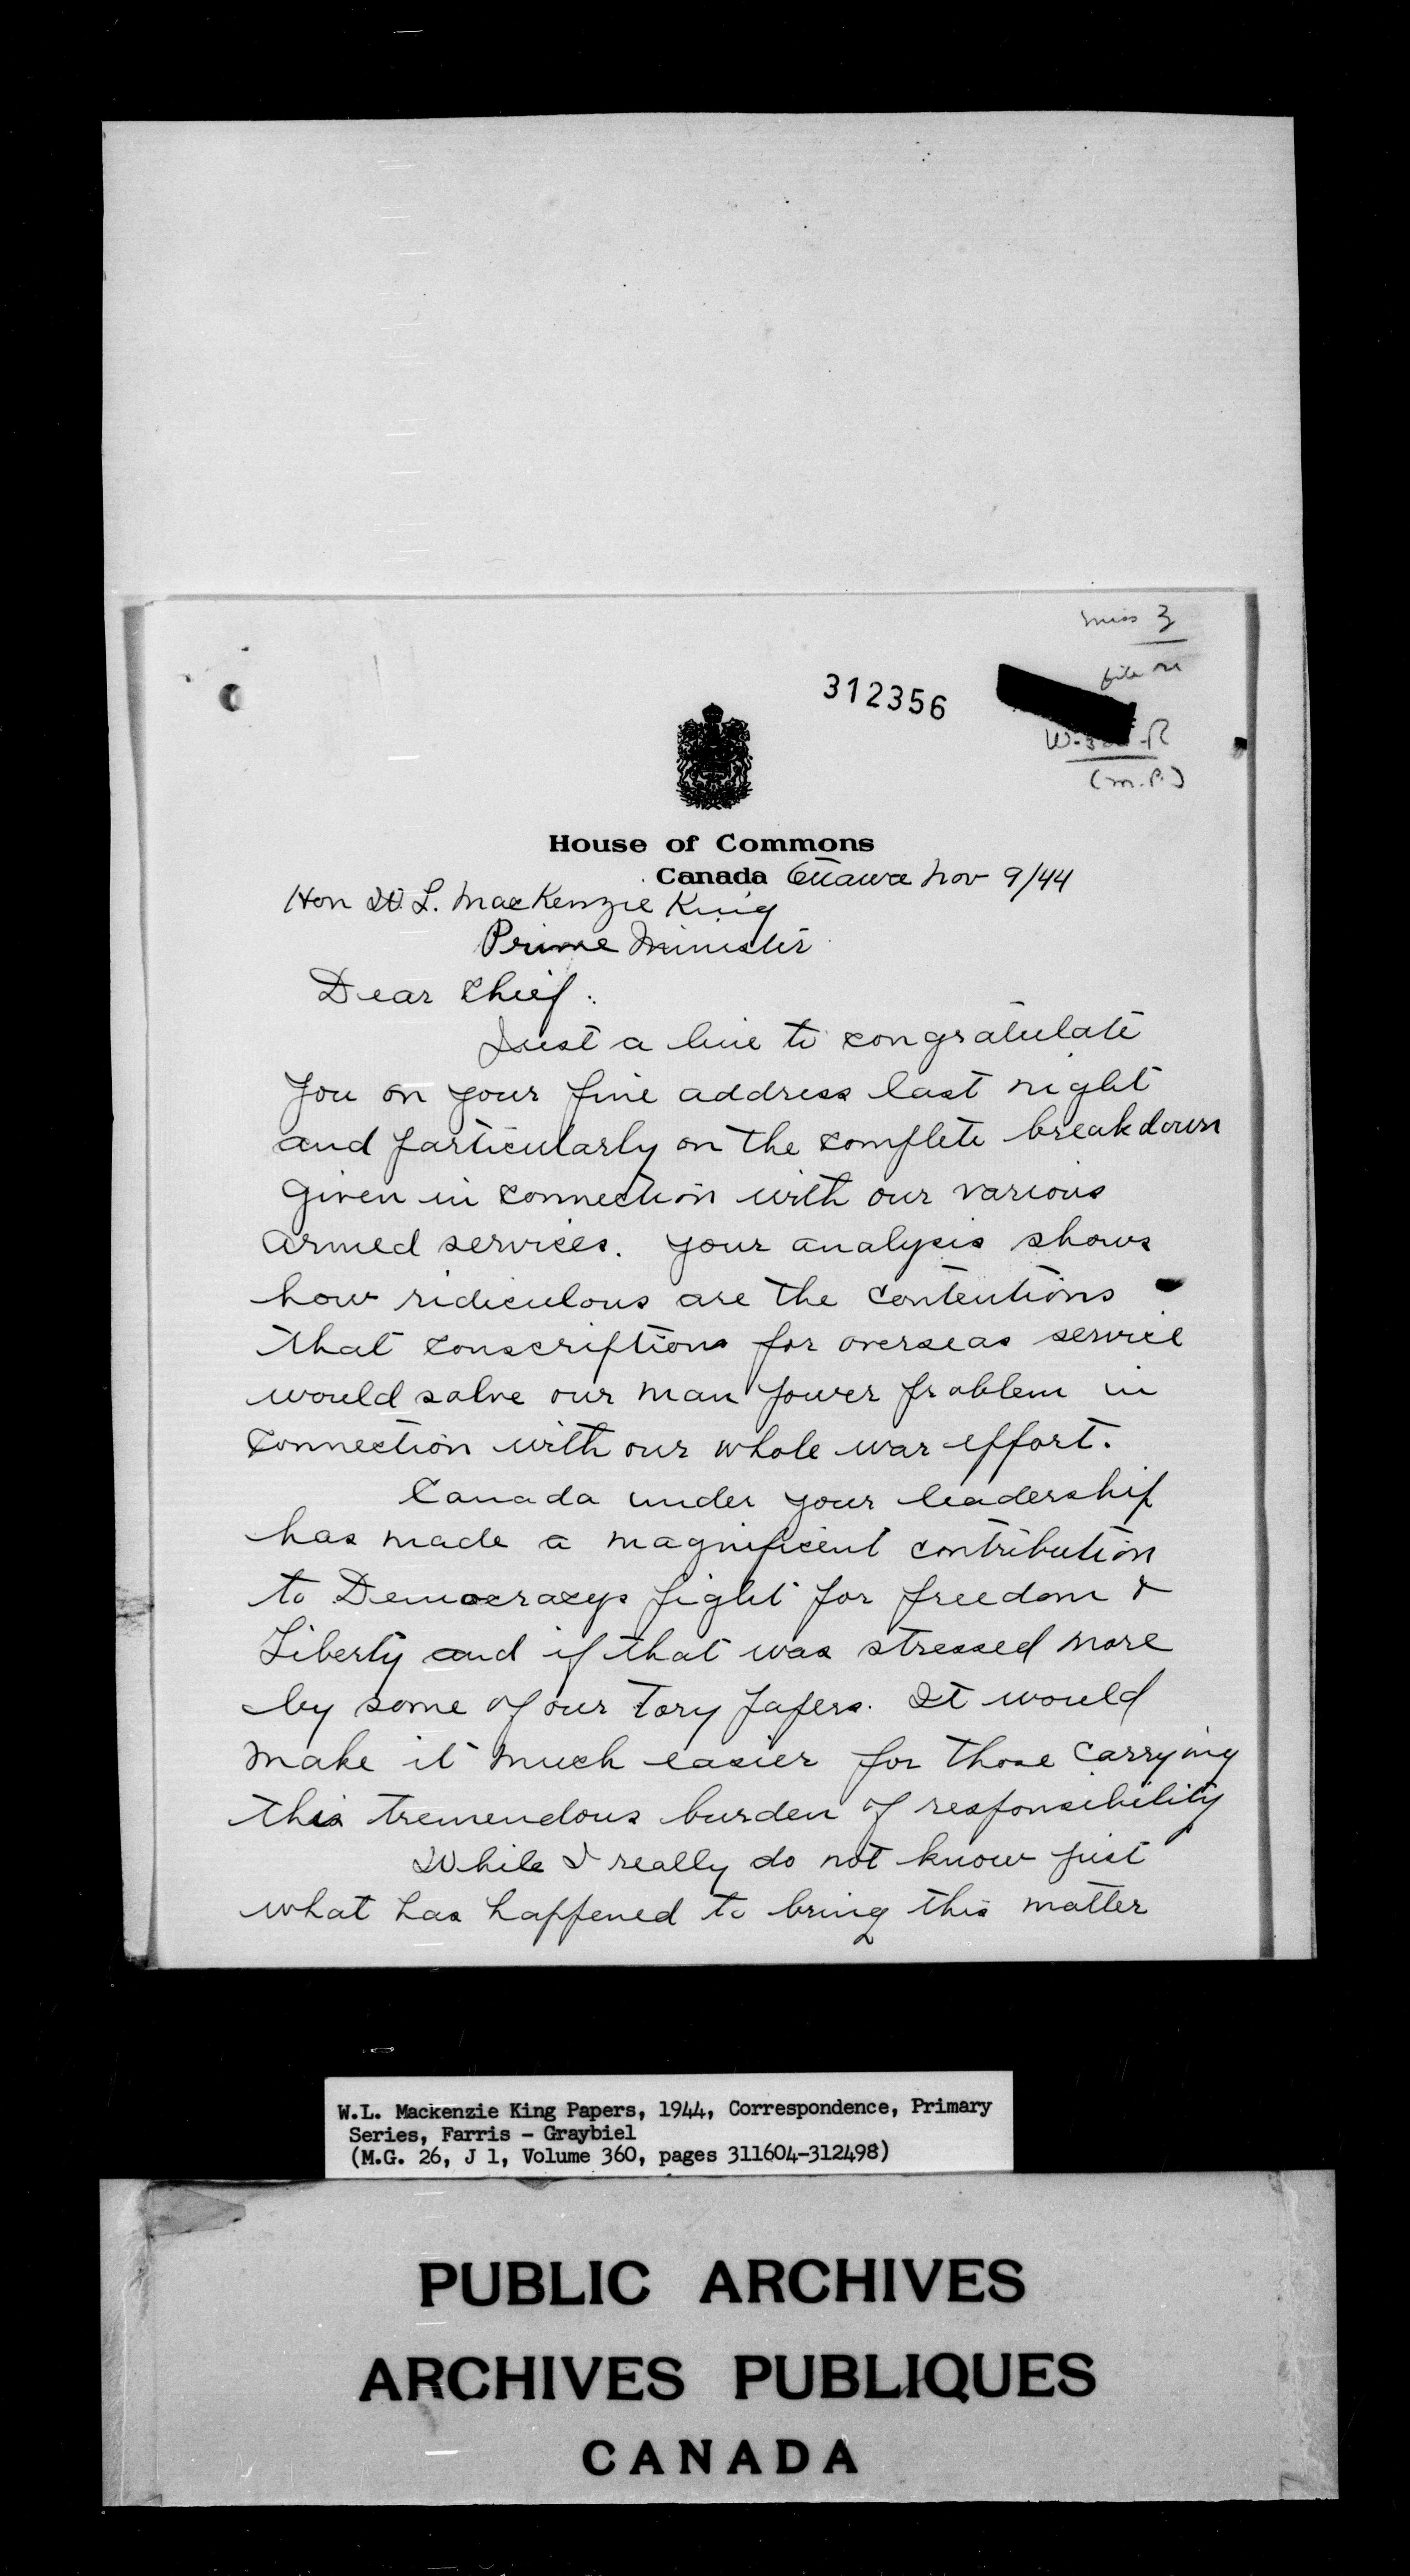 Miss Z
file on
312356
W-3 -R
(M.P.)
House of Commons
Canada Ottawa Nov 9/44
Hon W. L. MacKenzie King
Prime Minister
Dear Chief:
Just a line to congratulate
you on your fine address last night
and particularly on the complete breakdown
given in connection with our various
armed services. Your analysis shows
how ridiculous are the contentions
that conscription for overseas service
would solve our man power problem in
connection with our whole war effort.
Canada under your leadership
has made a magnificent contribution
to Democracys fight for freedom &
Liberty and if that was stressed more
by some of our Tory papers. It would
make it much easier for those carrying
this tremendous burden of responsibility
While I really do not know just
what has happened to bring this matter
W.L. Mackenzie King Papers, 1944, Correspondence, Primary
Series, Farris - Graybiel
(M.G. 26, J 1, Volume 360, pages 311604-312498)
PUBLIC ARCHIVES
ARCHIVES PUBLIQUES
CANADA